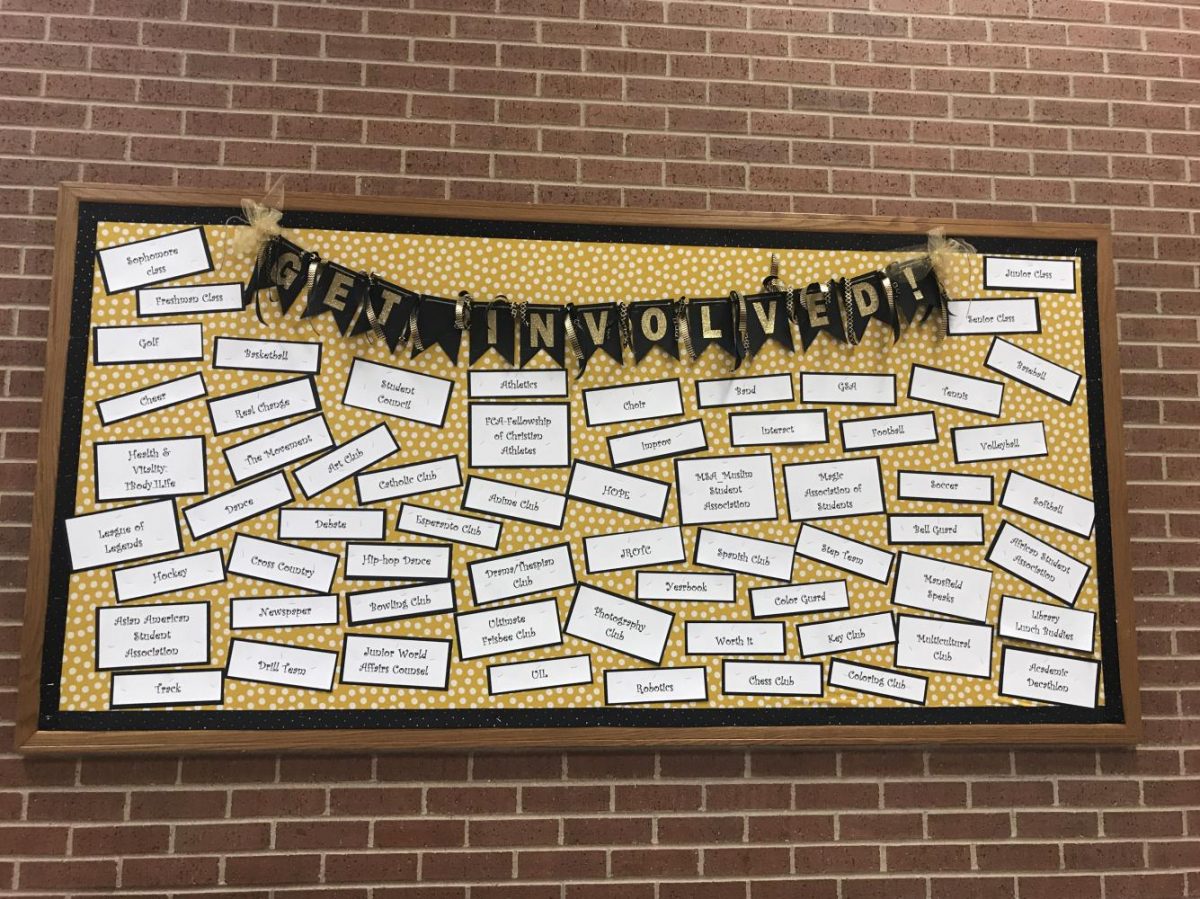 GET INVOLVED!
Sophomore
class
Freshman Class
Junior Class
Senior Class
Golf
Basketball
Cheer
Real Change
Student
Council
Athletics
Choir
Band
GSA
Tennis
Baseball
Health &
Vitality:
1Body1Life
The Movement
Art Club
FCA-Fellowship
of Christian
Athletes
Improv
Interact
Football
Volleyball
League of
Legends
Dance
Catholic Club
Anime Club
HOPE
MSA_Muslim
Student
Association
Magic
Association of
Students
Soccer
Softball
Debate
Esperanto Club
Bell Guard
Hockey
Cross Country
Hip-hop Dance
Drama/Thespian
Club
JROTC
Spanish Club
Step Team
African Student
Association
Yearbook
Mansfield
Speaks
Asian American
Student
Association
Newspaper
Bowling Club
Ultimate
Frisbee Club
Photography
Club
Color Guard
Library
Lunch Buddies
Worth it
Key Club
Multicultural
Club
Drill Team
Junior World
Affairs Counsel
Track
UIL
Robotics
Chess Club
Coloring Club
Academic
Decathlon